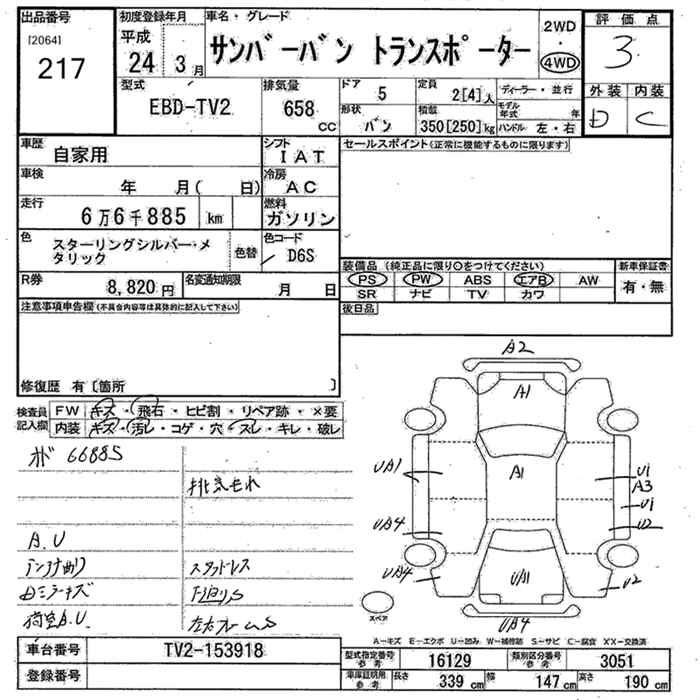 出品番号
[2064]
217
初度登録年月
平成
24 3月
車名・グレード
サンバーバン トランスポーター
2WD
・
4WD
評価点
3
型式
EBD-TV2
排気量
658 cc
ドア
5
定員
2[4]人
ディーラー・並行
形状
バン
積載
350[250]kg
モデル年式 年
ハンドル 左・右
外装 内装
D C
車歴
自家用
シフト
IAT
車検
年 月( 日)
冷房
AC
走行
6万6千885 km
燃料
ガソリン
色
スターリングシルバー・メタリック
色替
色コード
D6S
R券
8,820円
名変通知期限
月 日
セールスポイント(正常に機能するものに限ります)
装備品 (純正品に限り○をつけてください)
PS PW ABS エアB AW
SR ナビ TV カワ
新車保証書
有・無
後日品
注意事項申告欄(不具合内容等は具体的に記入して下さい)
修復歴 有〔箇所 〕
検査員記入欄
FW キズ・飛石・ヒビ割・リペア跡・×要
内装 キズ・汚レ・コゲ・穴・スレ・キレ・破レ
66885
排気もれ
A.U
アンテナ曲り
スタッドレス
下廻りS
荷室A.U.
A2
A1
A1
UA1
U1
A3
U1
UA4
U2
UA4
UA1
U2
UA4
スペア
A-キズ E-エクボ U-凹み W-補修跡 S-サビ C-腐食 XX-交換済
車台番号
TV2-153918
登録番号
型式指定番号 参考
16129
類別区分番号 参考
3051
車庫証明用 参考
長さ 339 cm 幅 147 cm 高さ 190 cm